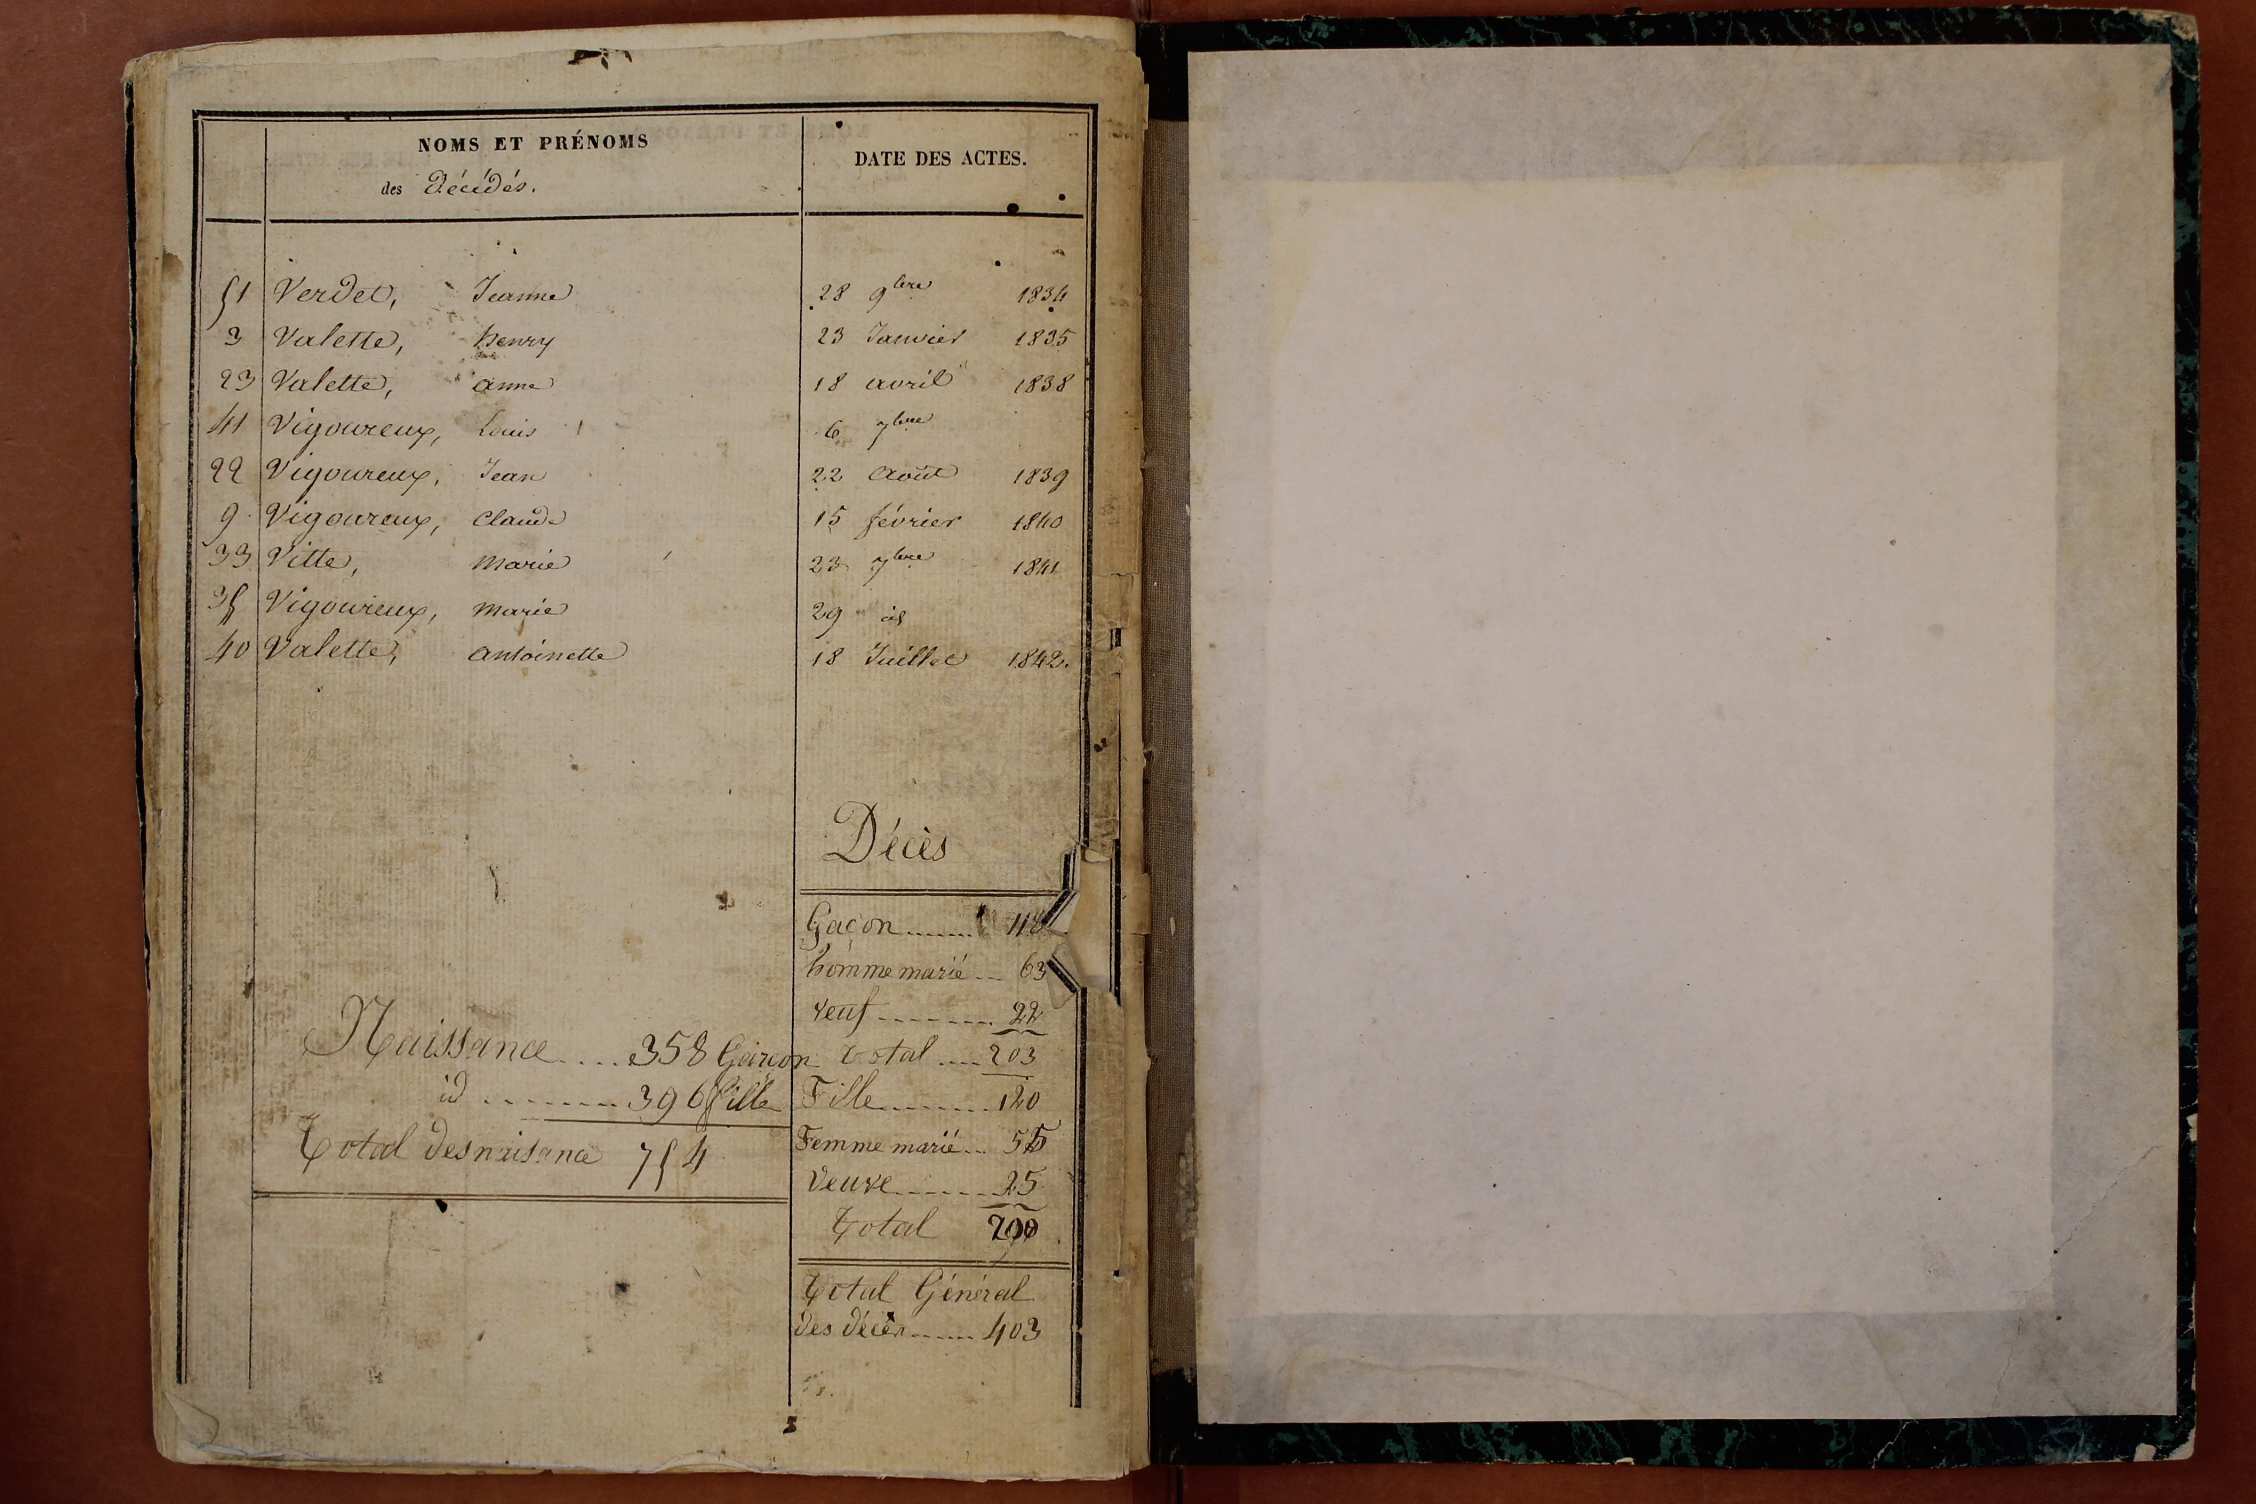 NOMS ET PRÉNOMS
des décédés.
DATE DES ACTES.
51 Verdet, Jeanne 28 9bre 1834
3 Valette, henry 23 Janvier 1835
23 Valette, anne 18 avril 1838
41 Vigoureux, Louis 6 7bre
22 Vigoureux, Jean 22 Août 1839
9 Vigoureux, Claude 15 février 1840
33 Vitte, Marie 23 7bre 1841
35 Vigoureux, Marie 29 id
40 Valette, antoinette 18 Juillet 1842.
Décès
Gaçon 118
homme marié 63
veuf 22
total 203
Fille 120
Femme marié 55
Veuve 25
Total 200
Total Général
des décès 403
Naissance 358 Garçon
id 396 fille
Total des naisance 754